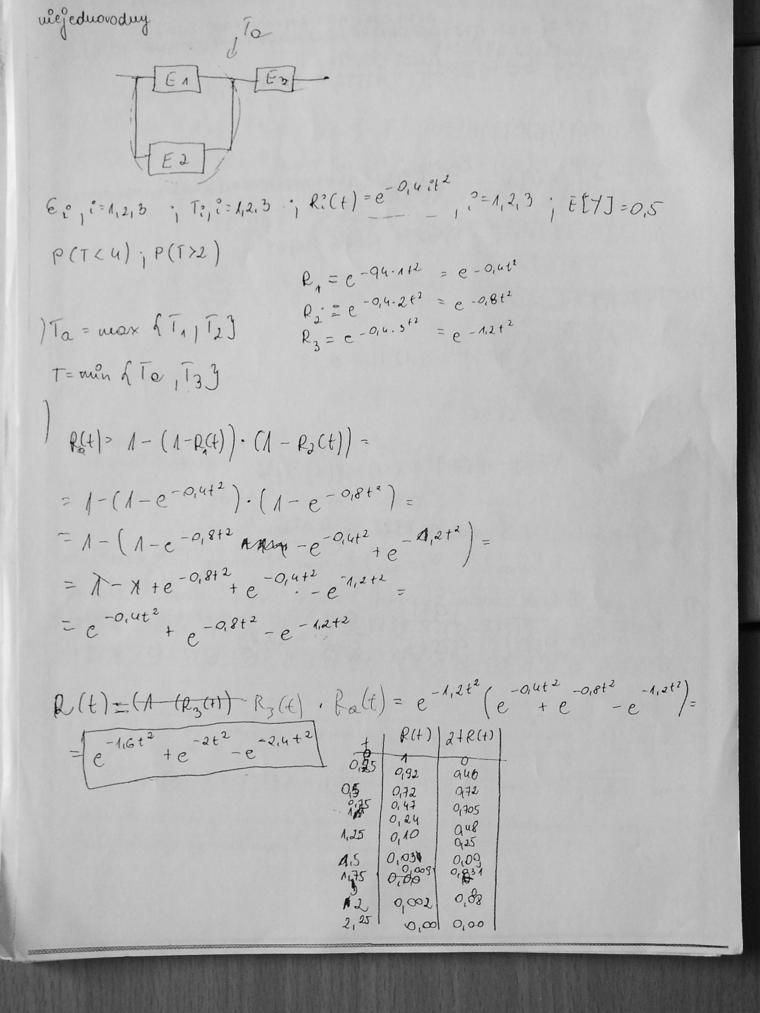 niejednorodny
Ta
E1 E3
E2
Ei, i=1,2,3 ; Ti, i=1,2,3 ; Ri(t) = e^-0,4it² , i=1,2,3 ; E[Y]=0,5
P(T<4) ; P(T>2)
R1 = e^-0,4·1t² = e^-0,4t²
R2 = e^-0,4·2t² = e^-0,8t²
R3 = e^-0,4·3t² = e^-1,2t²
) Ta = max {T1, T2}
T = min {Ta, T3}
) Ra(t) = 1-(1-R1(t))·(1-R2(t)) =
= 1-(1-e^-0,4t²)·(1-e^-0,8t²) =
= 1-(1-e^-0,8t² -e^-0,4t² +e^-1,2t²) =
= 1-1+e^-0,8t² +e^-0,4t² -e^-1,2t² =
= e^-0,4t² +e^-0,8t² -e^-1,2t²
R(t) = (1-(R3(t)) R3(t) · Ra(t) = e^-1,2t² (e^-0,4t² +e^-0,8t² -e^-1,2t²) =
= e^-1,6t² +e^-2t² -e^-2,4t²
t R(t) 2tR(t)
0 1 0
0,25 0,92 0,46
0,5 0,72 0,72
0,75 0,47 0,705
1 0,24 0,48
1,25 0,10 0,25
1,5 0,03 0,09
1,75 0,009 0,031
2 0,002 0,08
2,25 0,00 0,00